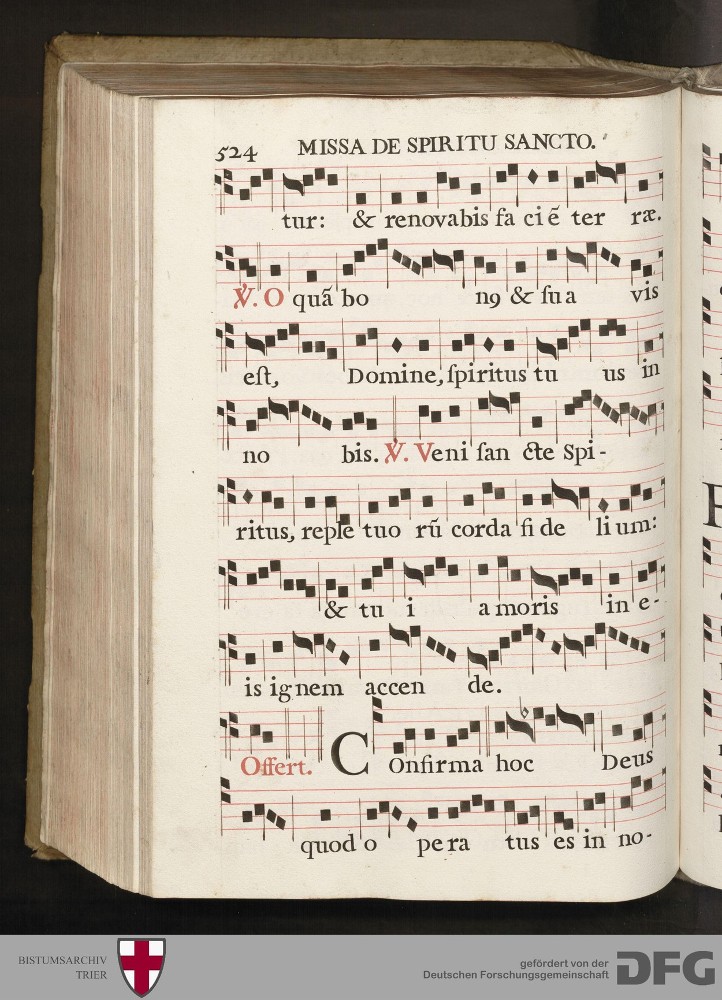 524 MISSA DE SPIRITU SANCTO.
tur: & renovabis fa ciẽ ter ræ.
℣. O quã bo nꝰ & ſu a vis
eſt, Domine, ſpiritus tu us in
no bis. ℣. Veni ſan cte Spi-
ritus, reple tuo rũ corda fi de li um:
& tu i a moris in e-
is ignem accen de.
Offert. COnfirma hoc Deus
quod o pe ra tus es in no-
BISTUMSARCHIV
TRIER
gefördert von der
Deutschen Forschungsgemeinschaft
DFG